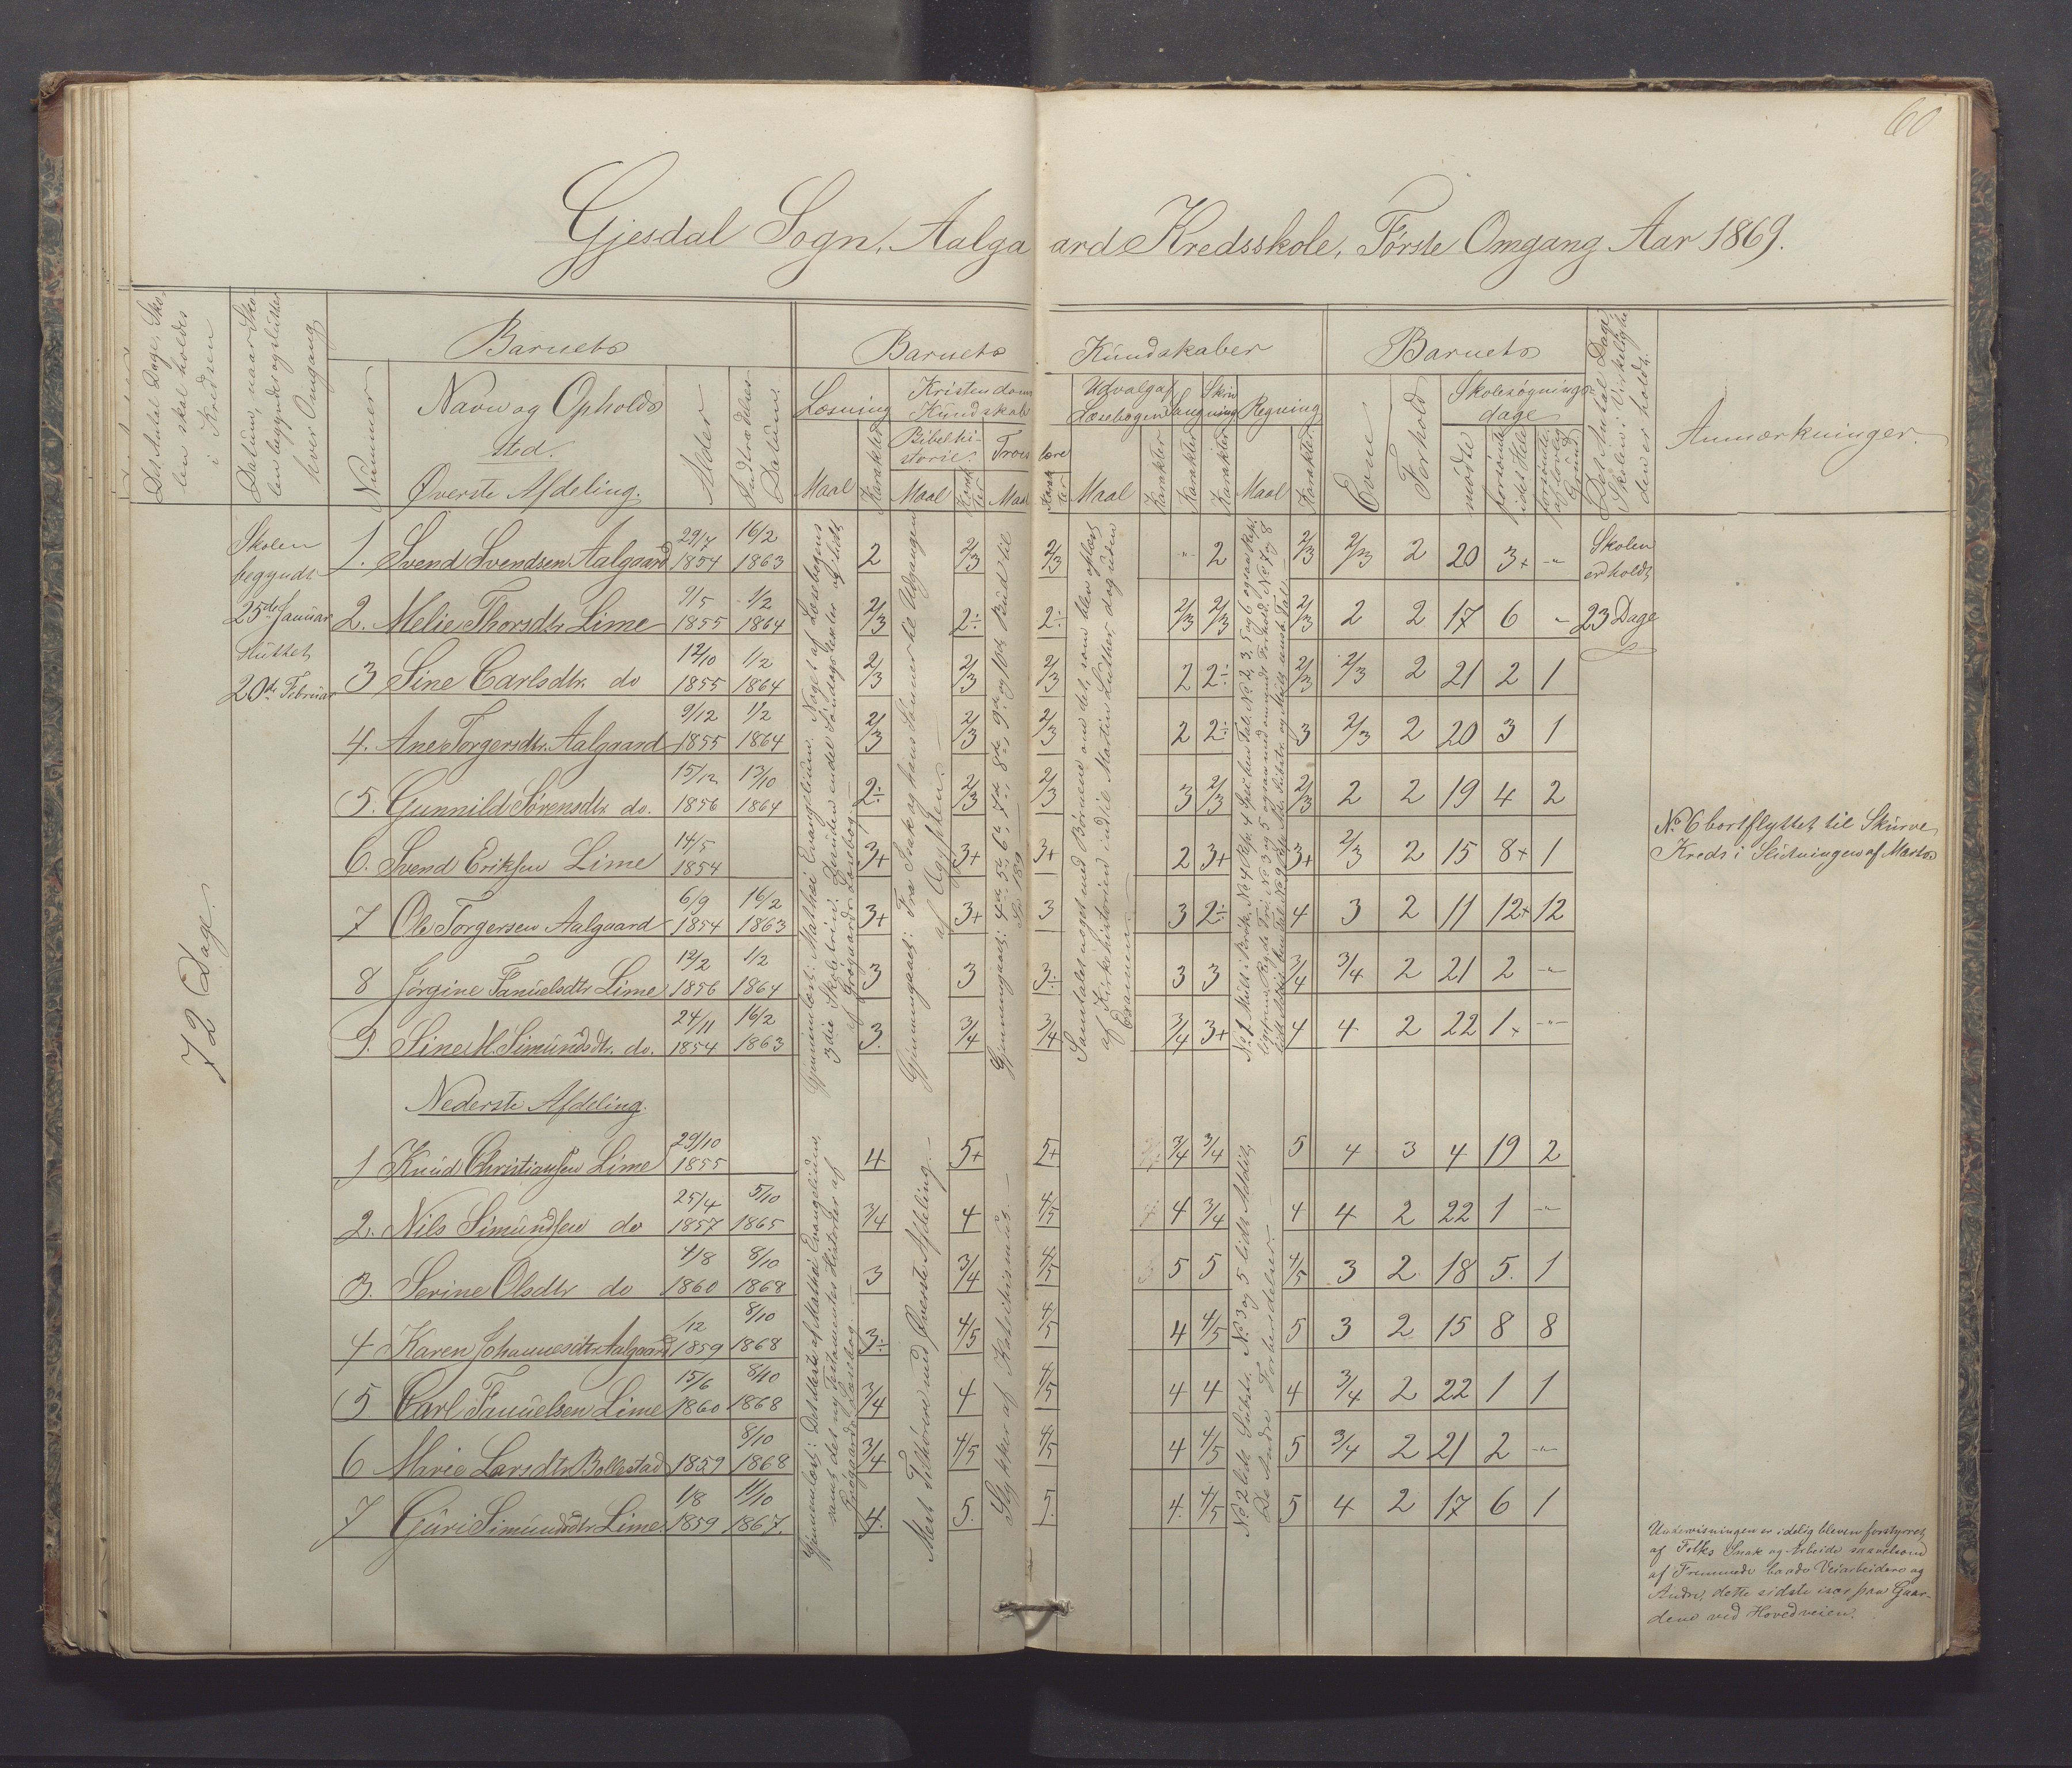 60
Gjesdal Sogn, Aalgaard Kredsskole, Første Omgang Aar 1869.
Det Antal Dage, Sko-
len skal holdes
i Kredsen
Datum, naar Sko-
len begyndes og slutter
hver Omgang
Barnets
Nummer
Navn og Opholds
sted.
Øverste Afdeling.
Alder
Indtrædelses
Datum
Barnets Kundskaber
Læsning
Maal
Karakter
Kristendoms
Kundskab
Bibelhi-
storie.
Maal
Karak
ter
Troes lære
Maal
Karak
ter
Udvalg af
Læsebogen
Maal
Karakter
Sang
Karakter
Skriv
ning
Karakter
Regning
Maal
Karakter
Barnets
Evne
Forhold
Skolesøgnings-
dage
mødte
forsømte
i det Hele
forsømte
af lovlig
Grund
Det Antal Dage,
Skolen i Virkelighe
den er holdt.
Anmærkninger.
72 Dage.
Skolen
begyndte
25de Januar
sluttet
20de Februar
1. Svend Svendsen Aalgaard 29/7 1854 16/2 1863 2 2/3 2/3 " 2 2/3 2/3 2 20 3+ "
2. Melie Thorsdtr Lime 9/5 1855 1/2 1864 2/3 2÷ 2÷ 2/3 2/3 2/3 2 2 17 6 "
3 Sine Carlsdtr. do 12/10 1855 1/2 1864 2/3 2/3 2/3 2 2÷ 2/3 2/3 2 21 2 1
4. Ane Torgersdtr. Aalgaard 9/12 1855 1/2 1864 2/3 2/3 2/3 2 2÷ 3 2/3 2 20 3 1
5. Gunnild Sørensdtr do. 15/12 1856 13/10 1864 2÷ 2/3 2/3 3 2/3 2/3 2 2 19 4 2
6. Svend Eriksen Lime 14/5 1854 3+ 3+ 3+ 2 3+ 3+ 2/3 2 15 8+ 1
7 Ole Torgersen Aalgaard 6/9 1854 16/2 1863 3+ 3+ 3 3 2÷ 4 3 2 11 12+ 12
8 Jørgine Fanuelsdtr Lime 12/2 1856 1/2 1864 3 3 3÷ 3 3 3/4 3/4 2 21 2 "
9. Sine M. Simundsdtr. do. 24/11 1854 16/2 1863 3. 3/4 3/4 3/4 3+ 4 4 2 22 1+ "
Skolen
er holdt
23 Dage
Gjennemlæst: Matthæi Evangelium. Noget af Læsebogens
3die Skoletrin. Desuden endel Søndagstexter og lidt
af Grøgaards Læsebog.
Gjennemgaaet: Fra Isak og hans Sønner til Udgangen
af Ægypten.
Gjennemgaaet: 4de 5te 6te 7de 8de 9de og 10de Bud til
Sp. 189
Samtalet noget med Børnene om det, som blev oplæst
af Kirkehistorien indtil Martin Luther dog uden
Examen.
No 6 bortflyttet til Skurve
Kreds i Slutningen af Marts
Nederste Afdeling.
1 Knud Christiansen Lime 29/10 1855 4 5+ 5+ 3/4 3/4 5 4 3 4 19 2
2. Nils Simundsen do 25/4 1857 5/10 1865 3/4 4 4/5 4 3/4 4 4 2 22 1 "
3. Serine Olsdtr do 4/8 1860 8/10 1868 3 3/4 4/5 5 5 4/5 3 2 18 5. 1
4 Karen Johannesdtr Aalgaard /12 1859 8/10 1868 3÷ 4/5 4/5 4 4/5 5 3 2 15 8 8
5 Carl Fanuelsen Lime 15/6 1860 8/10 1868 3/4 4 4/5 4 4 4 3/4 2 22 1 1
6 Marie Larsdtr Bollestad 1859 8/10 1868 3/4 4/5 4/5 4 4/5 5 3/4 2 21 2 "
7 Guri Simundsdtr Lime. 1/8 1859 11/10 1867. 4. 5. 5. 4. 4/5 5 4 2 17 6 1
Gjennemlæst: Det Meste af Matthæi Evangelium,
samt det ny Testamentes Historier af
Grøgaards Læsebog.
Mest Tilhørere med Øverste Afdeling.
Stykker af Katekismus.
No 2 lidt Subtr. No 3 og 5 lidt Addit.
De Andre Forberedelser.
Undervisningen er idelig bleven forstyrret
af Folks Snak og Arbeide saavelsom
af Fremmede baade Veiarbeidere og
Andre, dette sidste især paa Gaar-
dene ved Hovedveien.